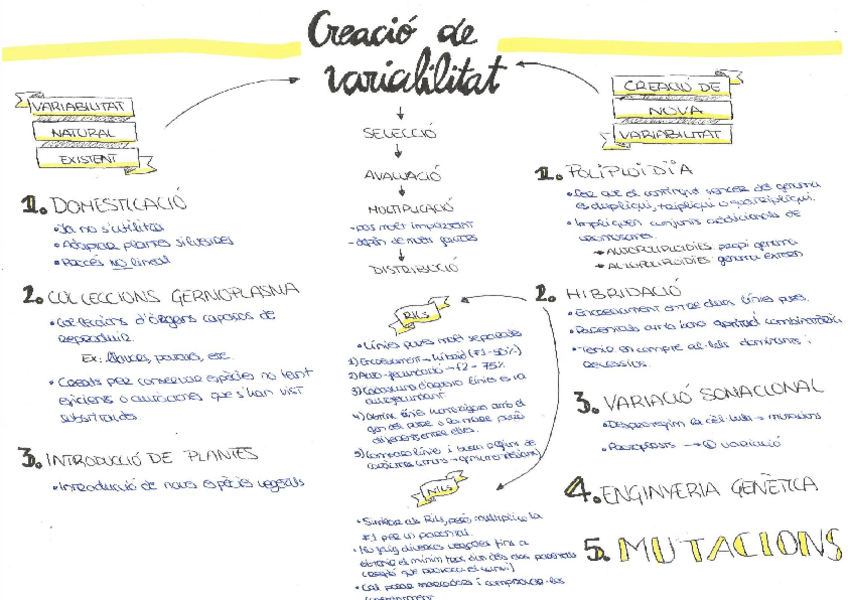 Creació de
variabilitat
VARIABILITAT
NATURAL
EXISTENT
1. DOMESTICACIÓ
• Ja no s'utilitza
• Adaptar plantes silvestres
• Procés NO lineal
2. COL·LECCIONS GERMOPLASMA
• Col·leccions d'òrgans capaços de
reproduir.
Ex: llavors, pol·len, etc.
• Creats per conservar espècies no tant
eficients o que s'han vist
substituïdes.
3. INTRODUCCIÓ DE PLANTES
• Introducció de noves espècies vegetals
SELECCIÓ
AVALUACIÓ
MULTIPLICACIÓ
- pas molt important
- depèn de molts
DISTRIBUCIÓ
RILs
• Línies pures molt separades
1) Encreuament → híbrid (F1-50%)
2) Auto-fecundació → F2 - 75%
3) Cadascuna d'aquestes línies es va
autofecundant
4) Obtinc línies amb el
gen del pare o la mare però
diferents entre elles.
5) Comparo línies i
NILs
• Similar als RILs, però multiplico la
F1 per un parental.
• Ho faig diverses vegades fins a
obtenir el mínim tros d'un dels dos parentals
• Cal posar marcadors i comprovar-los
CREACIÓ DE
NOVA
VARIABILITAT
1. POLIPLOIDÏA
• Fer que el contingut sencer del genoma
es dupliqui, tripliqui o quatripliqui.
• Impliquen conjunts addicionals de
cromosomes.
→ AUTOPOLIPLOIDIES: propi genoma
→ AL·LOPOLIPLOIDIES: genoma extern
2. HIBRIDACIÓ
• Encreuament entre dues línies pures.
• Parentals amb bona aptitud combinatòria
• Tenir en compte al·lels dominants i
recessius.
3. VARIACIÓ SOMACLONAL
• Desprogramem la cèl·lula → mutacions
• Protoplasts → variació
4. ENGINYERIA GENÈTICA
5. MUTACIONS